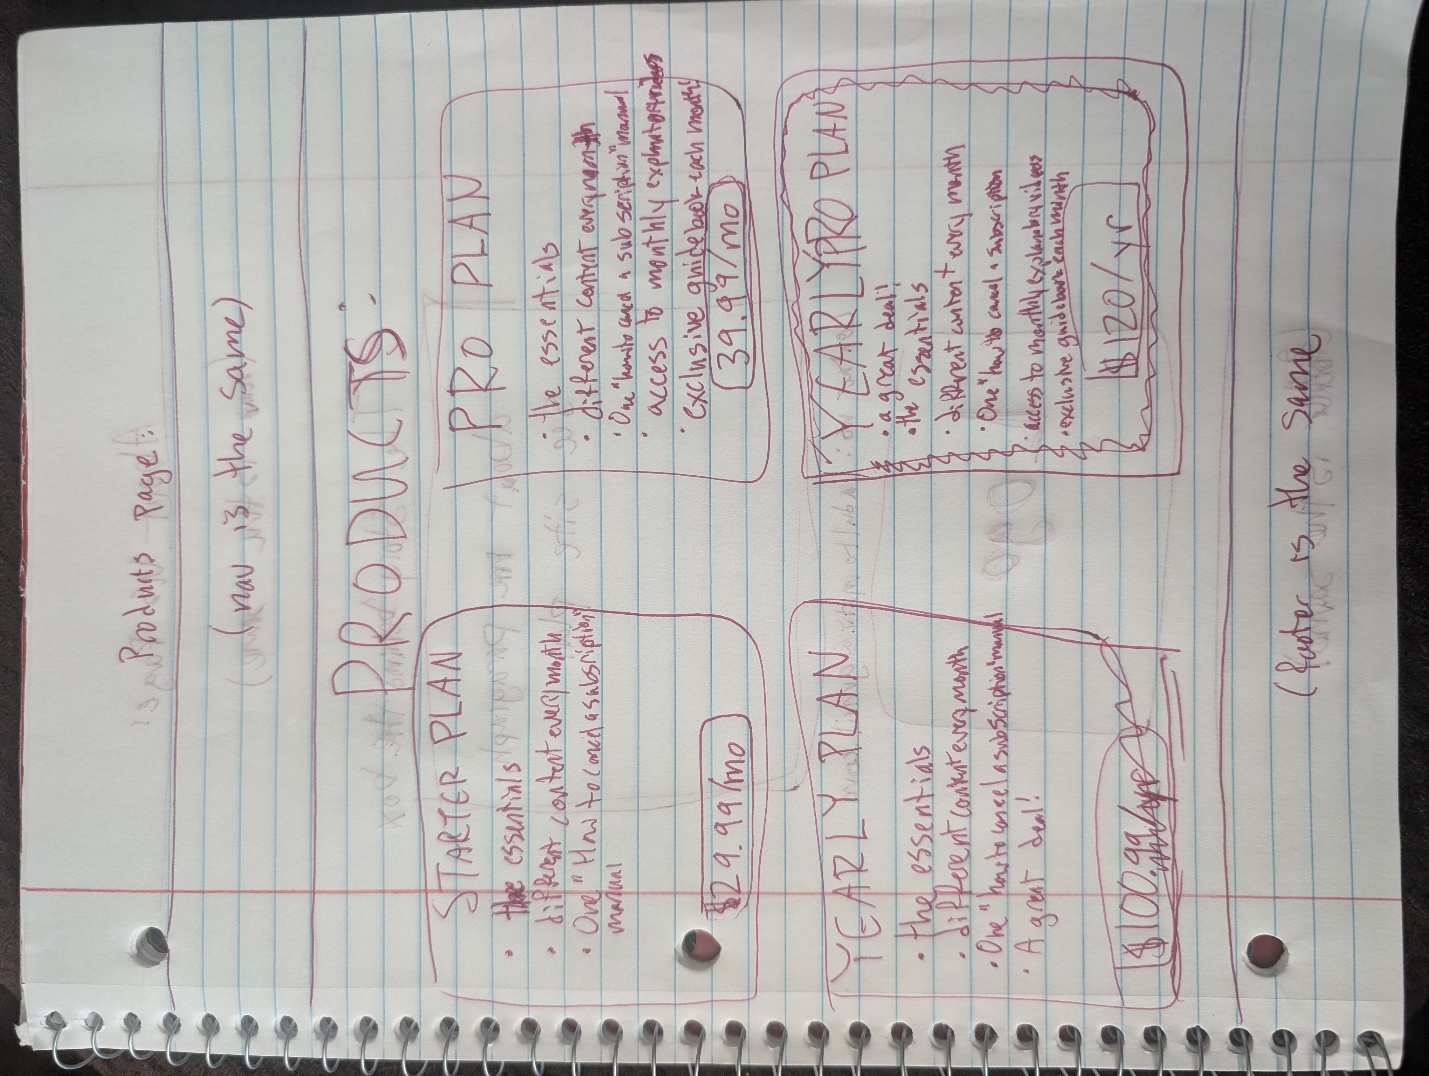 Products Page!:
(nav is the same)
PRODUCTS:
STARTER PLAN
• the essentials
• different content every month
• One "How to cancel a subscription"
manual
$29.99/mo
PRO PLAN
• the essentials
• different content every month
• One "how to cancel a subscription" manual
• access to monthly explanatory videos
• exclusive guidebook each month!
39.99/mo
YEARLY PLAN
• the essentials
• different content every month
• One "how to cancel a subscription" manual
• A great deal!
$100.99/yr
YEARLY PRO PLAN
• a great deal!
• the essentials
• different content every month
• One "how to cancel a subscription
• access to monthly explanatory videos
• exclusive guidebook each month
$120/yr
(footer is the same